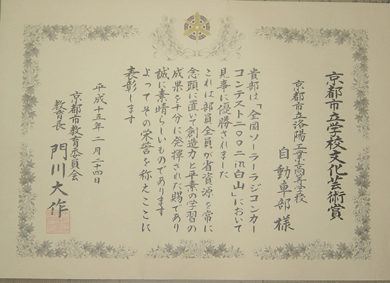 京都市立学校文化芸術賞
京都市立洛陽工業高等学校
自動車部 様
貴部は「全国ソーラーラジコンカー
コンテスト二〇〇二in白山」において
見事に優勝されました
これは部員全員が省資源を常に
念頭に置いて創造力と平素の学習の
成果を十分に発揮された賜であり
誠に素晴らしいものであります
よってその栄誉を称えここに
表彰します
平成十五年二月二十四日
京都市教育委員会
教育長 門川大作